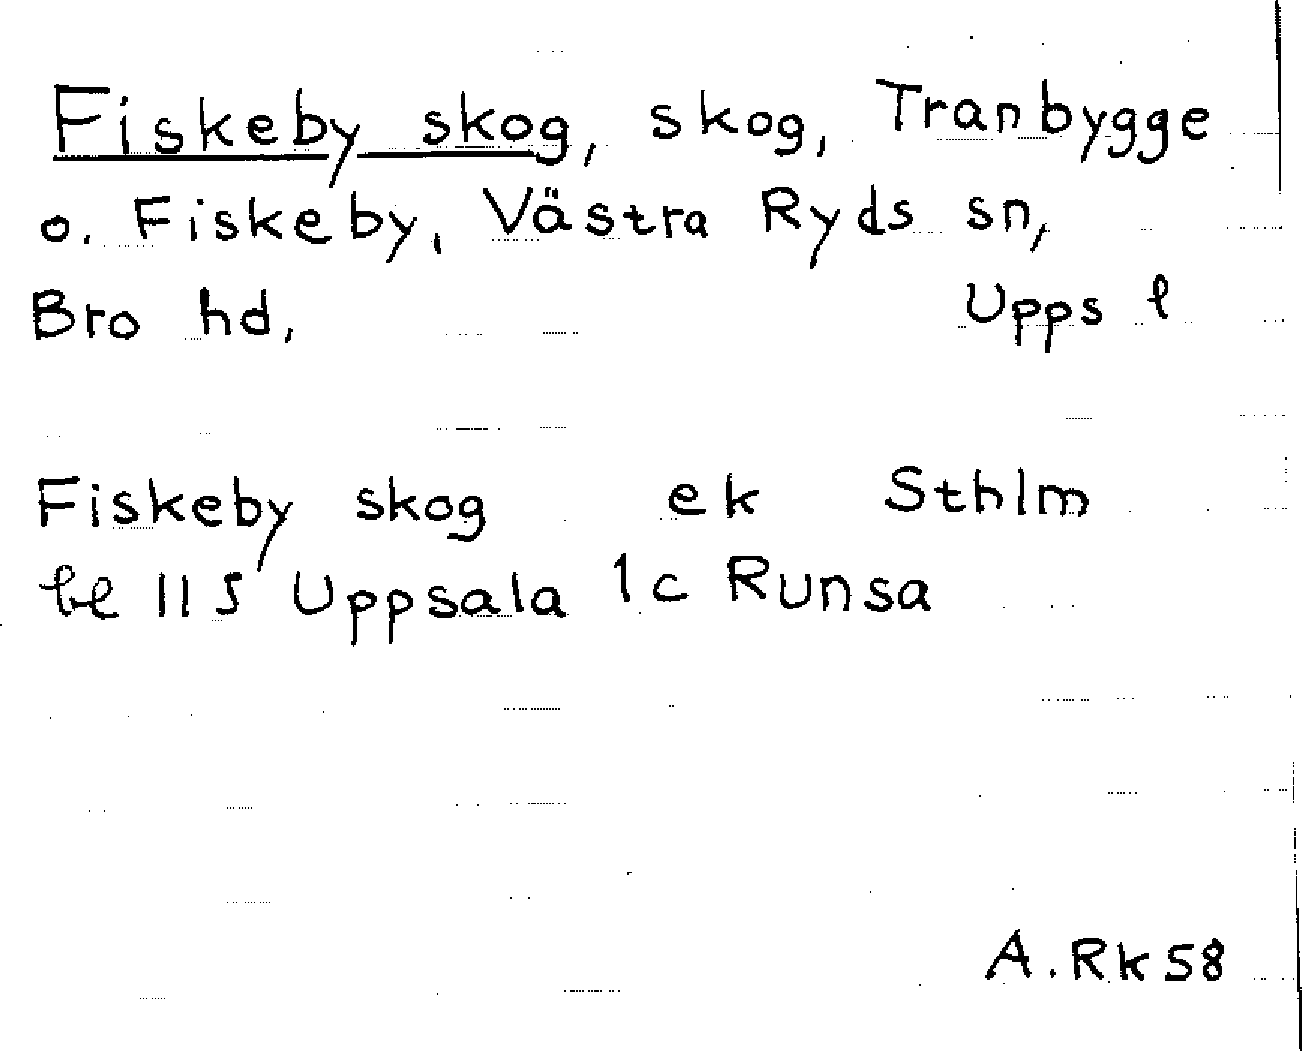 Fiskeby skog, skog, Tranbygge
o. Fiskeby, Västra Ryds sn,
Bro hd, Upps l
Fiskeby skog ek Sthlm
bl 115 Uppsala 1c Runsa
A. Rk 58